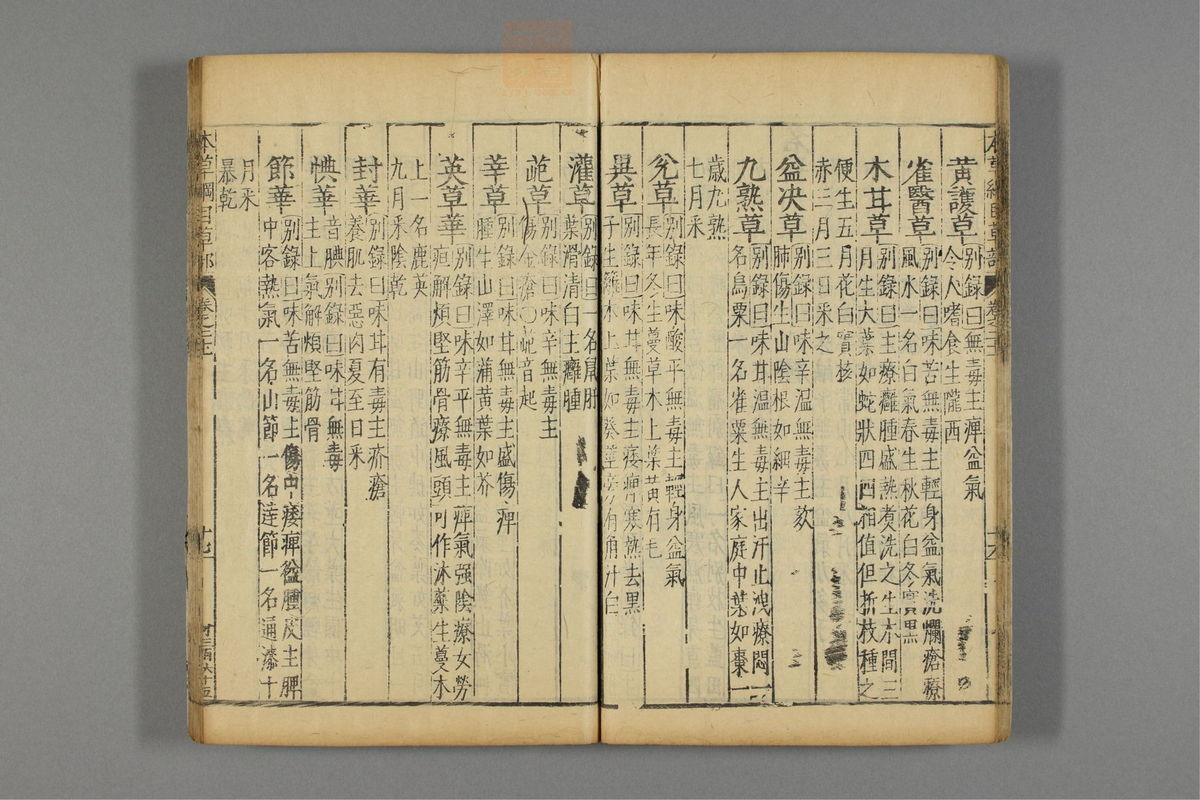 黄護草 别錄曰無毒主痺益氣
令人嗜食生隴西
雀醫草 别錄曰味苦無毒主輕身益氣洗爛瘡療
風水一名白氣春生秋花白冬實黒
木甘草 别錄曰主療癰腫盛熱煮洗之生木間三
月生大葉如蛇狀四四相值但折枝種之
便生五月花白實核
赤三月三日采之
益决草 别錄曰味辛温無毒主欬
肺傷生山陰根如細辛
九熟草 别錄曰味甘温無毒主出汗止洩療悶一
名烏粟一名雀粟生人家庭中葉如棗一
歳九熟
七月采
兊草 别錄曰味酸平無毒主輕身益氣
長年冬生蔓草木上葉黄有毛
異草 别錄曰味甘無毒主痿痺寒熱去黒
子生籬木上葉如葵莖旁有角汁白
灌草 别錄曰一名鼠肝
葉滑清白主癰腫
茈草 别錄曰味辛無毒主
傷金瘡○茈音起
莘草 别錄曰味甘無毒主盛傷痺
腫生山澤如蒲黄葉如芥
英草華 别錄曰味辛平無毒主痺氣强陰療女勞
疸解煩堅筋骨療風頭可作沐藥生蔓木
上一名鹿英
九月采陰乾
封華 别錄曰味甘有毒主疥瘡
養肌去惡肉夏至日采
㑣華 音腆别錄曰味甘無毒
主上氣解煩堅筋骨
節華 别錄曰味苦無毒主傷中痿痺溢腫皮主脾
中客熱氣一名山節一名達節一名通漆十
月采
暴乾
本草綱目草部 卷之二十一